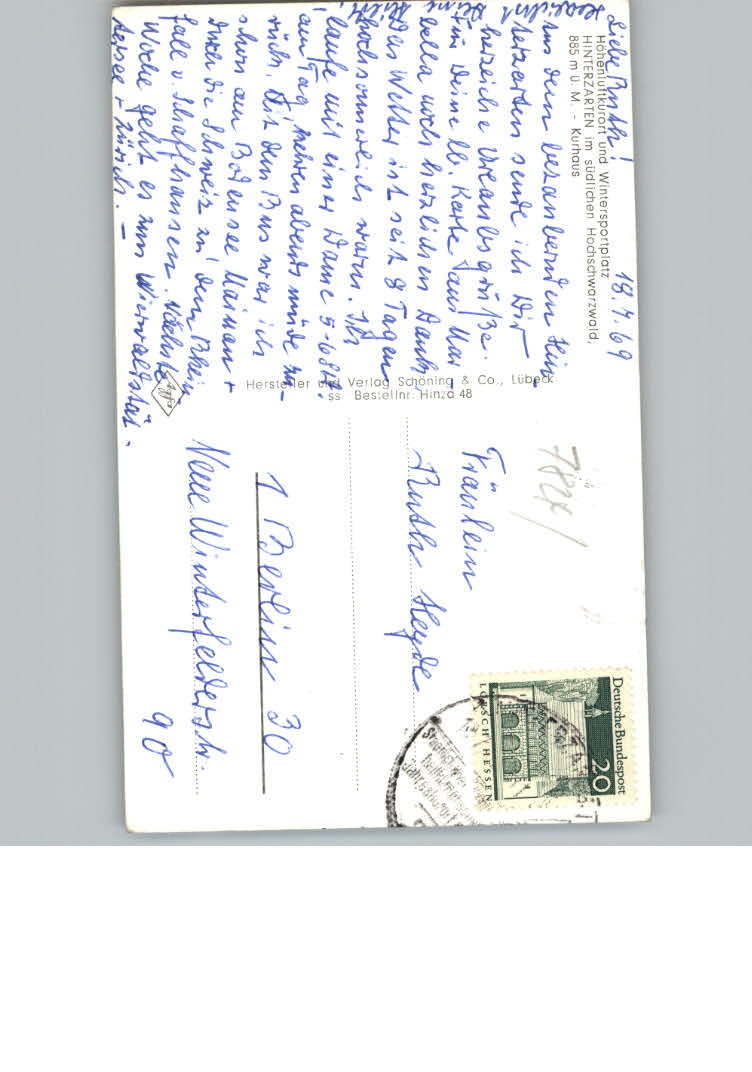 Höhenluftkurort und Wintersportplatz
HINTERZARTEN im südlichen Hochschwarzwald,
885 m ü. M. - Kurhaus
18.7.69
Liebe Ruth!
Aus dem bezaubernden Hin-
terzarten sende ich Dir
herzliche Urlaubsgrüße.
Für Deine lb. Karte aus Mar
bella noch herzlichen Dank.
Das Wetter ist seit 8 Tagen
hochsommerlich warm. Ich
laufe mit einer Dame 5-6 Std.
am Tag, kehren abends müde zu-
rück. Mit dem Bus war ich
schon am Bodensee Mainau +
durch die Schweiz zu dem Rhein
fall v. Schaffhausen. Nächste
Woche geht es zum Vierwaldstät.
tersee + Zürich. -
Herzlichst
Deine
Agfa
Hersteller und Verlag Schöning & Co., Lübeck
ss Bestellnr. Hinza 48
Fräulein
Ruth Heyde
1 Berlin 30
Neue Winterfeldtstr.
90
Deutsche Bundespost
20
LORSCH / HESSEN